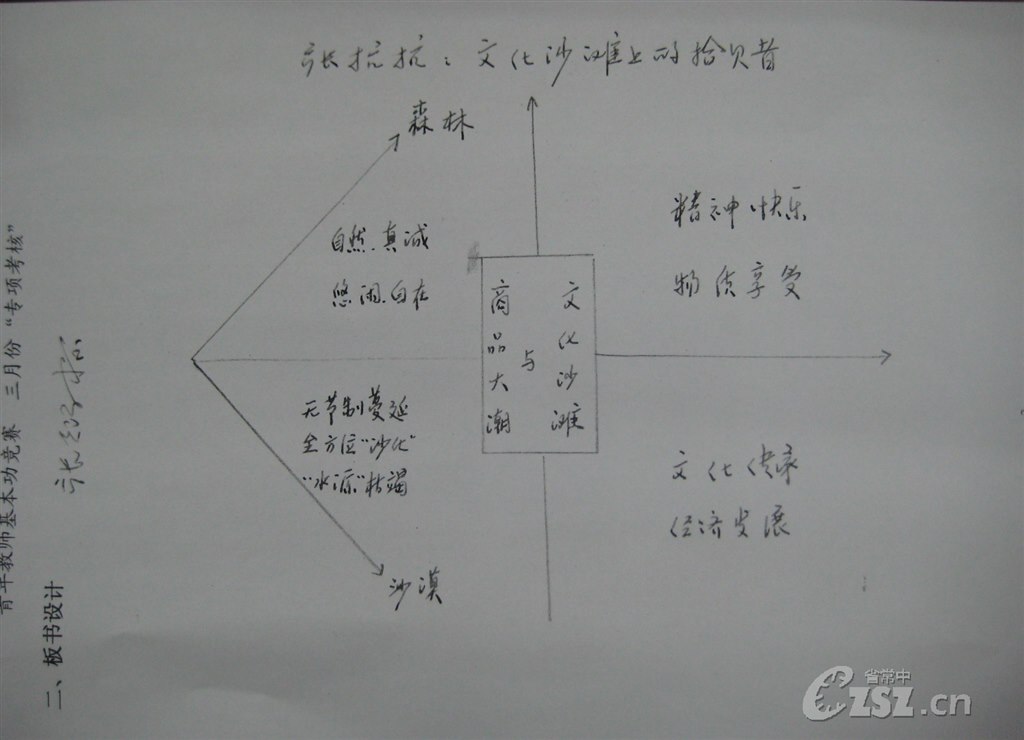 张抗抗：文化沙滩上的拾贝者
森林
自然.真诚
悠闲.自在
无节制蔓延
全方位“沙化”
“水源”枯竭
沙漠
商品大潮
与
文化沙滩
精神快乐
物质享受
文化传承
经济发展
青年教师基本功竞赛 三月份“专项考核”
二、板书设计
省常中
CZSZ.cn